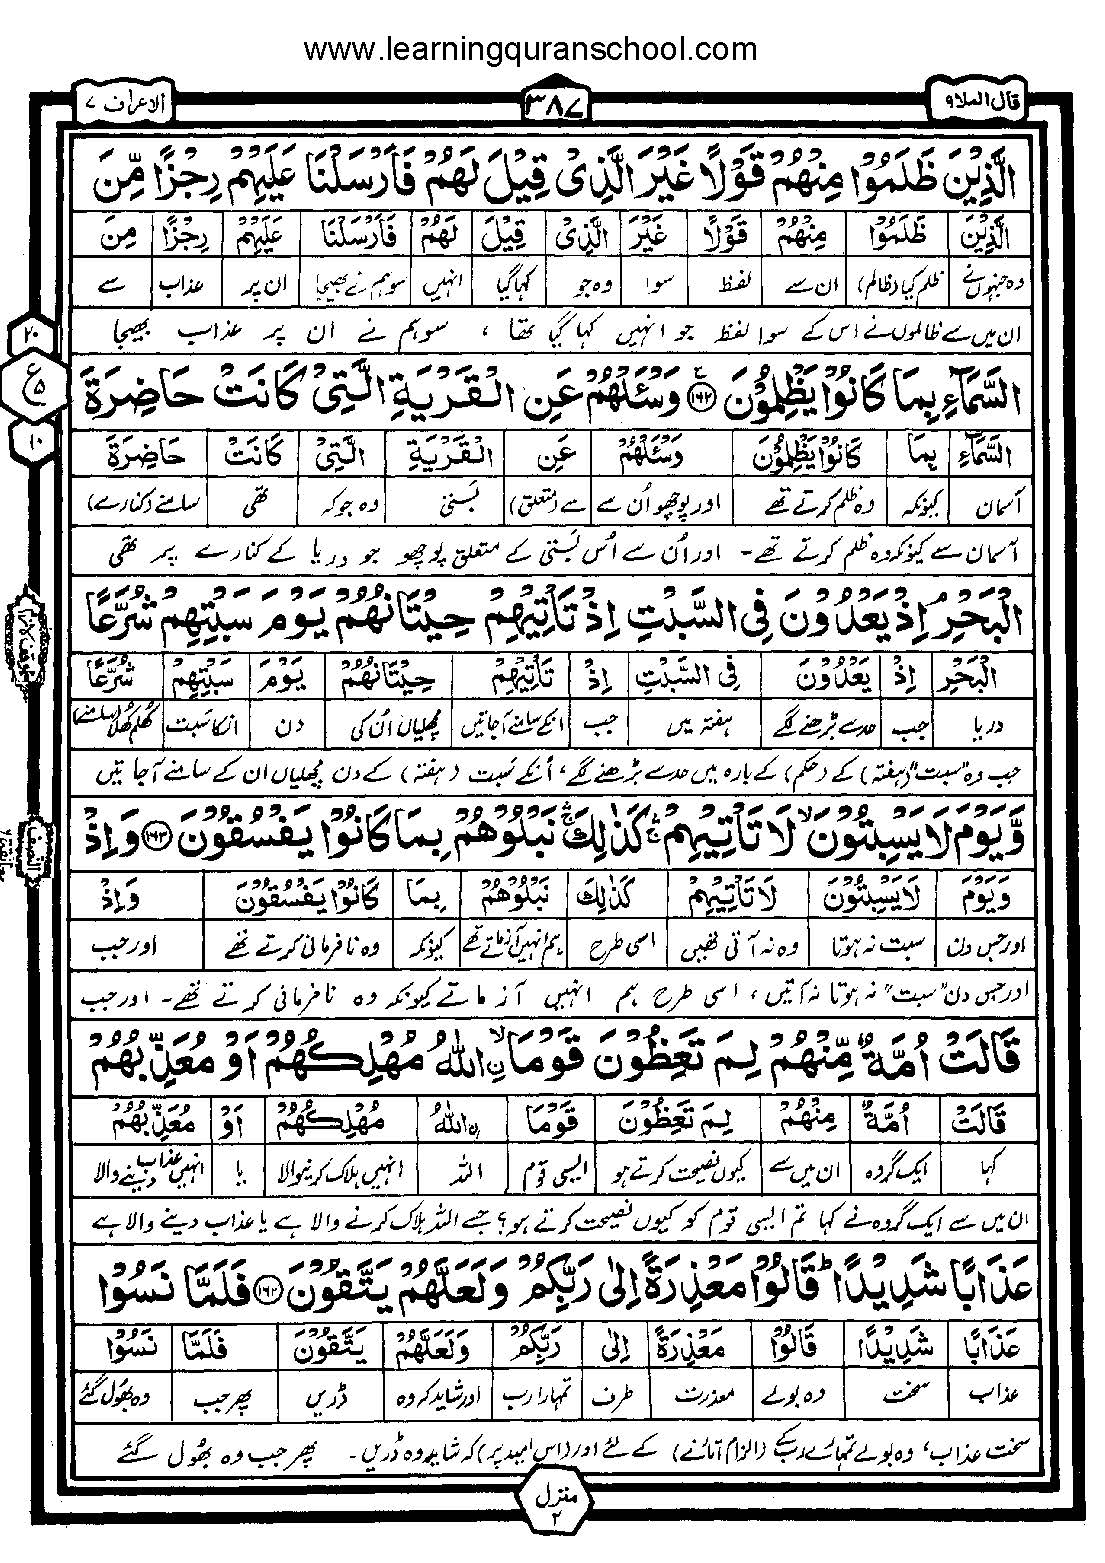 www.learningquranschool.com
قال الملا ۹
۳۸۷
الاعراف ۷
الَّذِيْنَ ظَلَمُوْا مِنْهُمْ قَوْلًا غَيْرَ الَّذِىْ قِيْلَ لَهُمْ فَاَرْسَلْنَا عَلَيْهِمْ رِجْزًا مِّنَ
الَّذِيْنَ ظَلَمُوْا مِنْهُمْ قَوْلًا غَيْرَ الَّذِىْ قِيْلَ لَهُمْ فَاَرْسَلْنَا عَلَيْهِمْ رِجْزًا مِنَ
وہ جنہوں نے ظلم کیا (ظالم) ان سے لفظ سوا وہ جو کہا گیا انہیں سو ہم نے بھیجا ان پر عذاب سے
ان میں سے ظالموں نے اس کے سوا لفظ جو انہیں کہا گیا تھا ، سو ہم نے ان پر عذاب بھیجا
۲۰
ع
۵
۱۰
السَّمَآءِ بِمَا كَانُوْا يَظْلِمُوْنَ ۱۶۲ وَسْئَلْهُمْ عَنِ الْقَرْيَةِ الَّتِىْ كَانَتْ حَاضِرَةَ
السَّمَآءِ بِمَا كَانُوْا يَظْلِمُوْنَ وَسْئَلْهُمْ عَنِ الْقَرْيَةِ الَّتِىْ كَانَتْ حَاضِرَةَ
آسمان کیونکہ وہ ظلم کرتے تھے اور پوچھو اُن سے سے (متعلق) بَستی وہ جو کہ تھی سامنے (کنارے)
آسمان سے کیونکہ وہ ظلم کرتے تھے۔ اور اُن سے اُس بَستی کے متعلق پوچھو جو دریا کے کنارے پر تھی
الْبَحْرِ اِذْ يَعْدُوْنَ فِى السَّبْتِ اِذْ تَاْتِيْهِمْ حِيْتَانُهُمْ يَوْمَ سَبْتِهِمْ شُرَّعًا
الْبَحْرِ اِذْ يَعْدُوْنَ فِى السَّبْتِ اِذْ تَاْتِيْهِمْ حِيْتَانُهُمْ يَوْمَ سَبْتِهِمْ شُرَّعًا
دریا جب حد سے بڑھنے لگے ہفتہ میں جب انکے سامنے آجاتیں مچھلیاں اُن کی دن انکا سبت کھلم کھلا (سامنے)
جب وہ "سبت" (ہفتہ) کے (حکم) کے بارہ میں حد سے بڑھنے لگے، اُنکے سَبت (ہفتہ) کے دن مچھلیاں ان کے سامنے آجاتیں
وَّيَوْمَ لَا يَسْبِتُوْنَ لَا تَاْتِيْهِمْ كَذٰلِكَ نَبْلُوْهُمْ بِمَا كَانُوْا يَفْسُقُوْنَ ۱۶۳ وَاِذْ
وَيَوْمَ لَا يَسْبِتُوْنَ لَا تَاْتِيْهِمْ كَذٰلِكَ نَبْلُوْهُمْ بِمَا كَانُوْا يَفْسُقُوْنَ وَاِذْ
اور جس دن سبت نہ ہوتا وہ نہ آتی تھیں اسی طرح ہم انہیں آزماتے تھے کیونکہ وہ نافرمانی کرتے تھے اور جب
اور جس دن "سبت" نہ ہوتا نہ آتیں، اسی طرح ہم انہیں آزماتے کیونکہ وہ نافرمانی کرتے تھے۔ اور جب
قَالَتْ اُمَّةٌ مِّنْهُمْ لِمَ تَعِظُوْنَ قَوْمَا ۙ نِ اللّٰهُ مُهْلِكُهُمْ اَوْ مُعَذِّبُهُمْ
قَالَتْ اُمَّةٌ مِنْهُمْ لِمَ تَعِظُوْنَ قَوْمَا نِ اللّٰهُ مُهْلِكُهُمْ اَوْ مُعَذِّبُهُمْ
کہا ایک گروہ ان میں سے کیوں نصیحت کرتے ہو ایسی قوم اللہ انہیں ہلاک کرنیوالا یا انہیں عذاب دینے والا
ان میں سے ایک گروہ نے کہا تم ایسی قوم کو کیوں نصیحت کرتے ہو؟ جسے اللہ ہلاک کرنے والا ہے یا عذاب دینے والا ہے
عَذَابًا شَدِيْدًا قَالُوْا مَعْذِرَةً اِلٰى رَبِّكُمْ وَلَعَلَّهُمْ يَتَّقُوْنَ ۱۶۴ فَلَمَّا نَسُوْا
عَذَابًا شَدِيْدًا قَالُوْا مَعْذِرَةً اِلٰى رَبِّكُمْ وَلَعَلَّهُمْ يَتَّقُوْنَ فَلَمَّا نَسُوْا
عذاب سخت وہ بولے معذرت طرف تمہارا رب اور شاید کہ وہ ڈریں پھر جب وہ بھول گئے
سخت عذاب، وہ بولے تمہارے رب کے (الزام اتارنے) کے لئے اور (اس امید پر) کہ شاید وہ ڈریں۔ پھر جب وہ بھُول گئے
منزل
۲